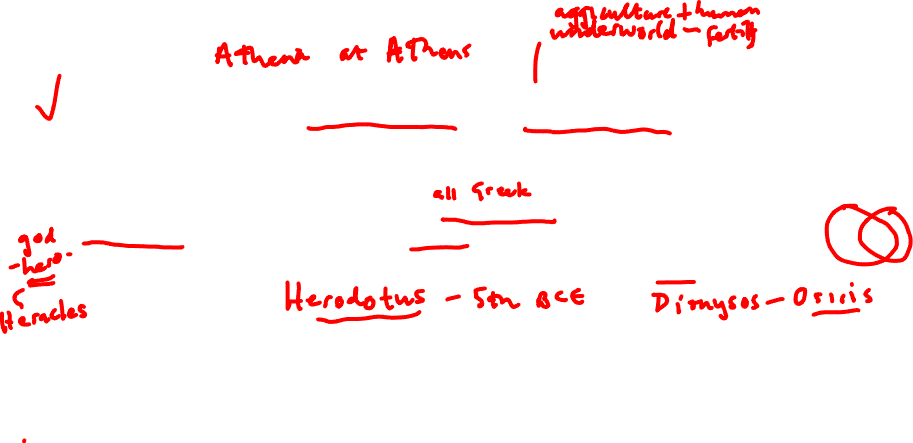 aggriculture + human
underworld - fertility
Athena at Athens
all Greek
god
-hero-
Heracles
Herodotus - 5th BCE
Dionysos - Osiris